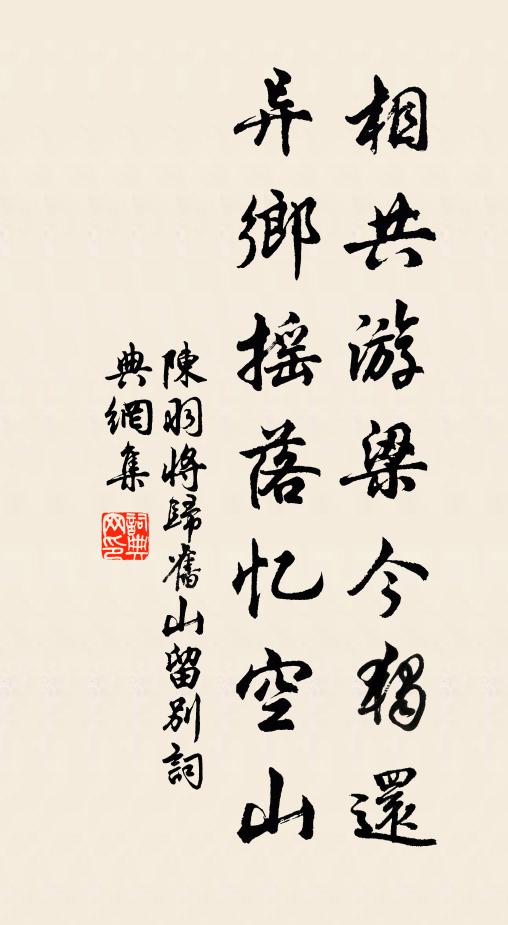 相共游梁今獨還
异鄉摇落忆空山
陳羽將歸舊山留别詞
典網集
詞典
网印